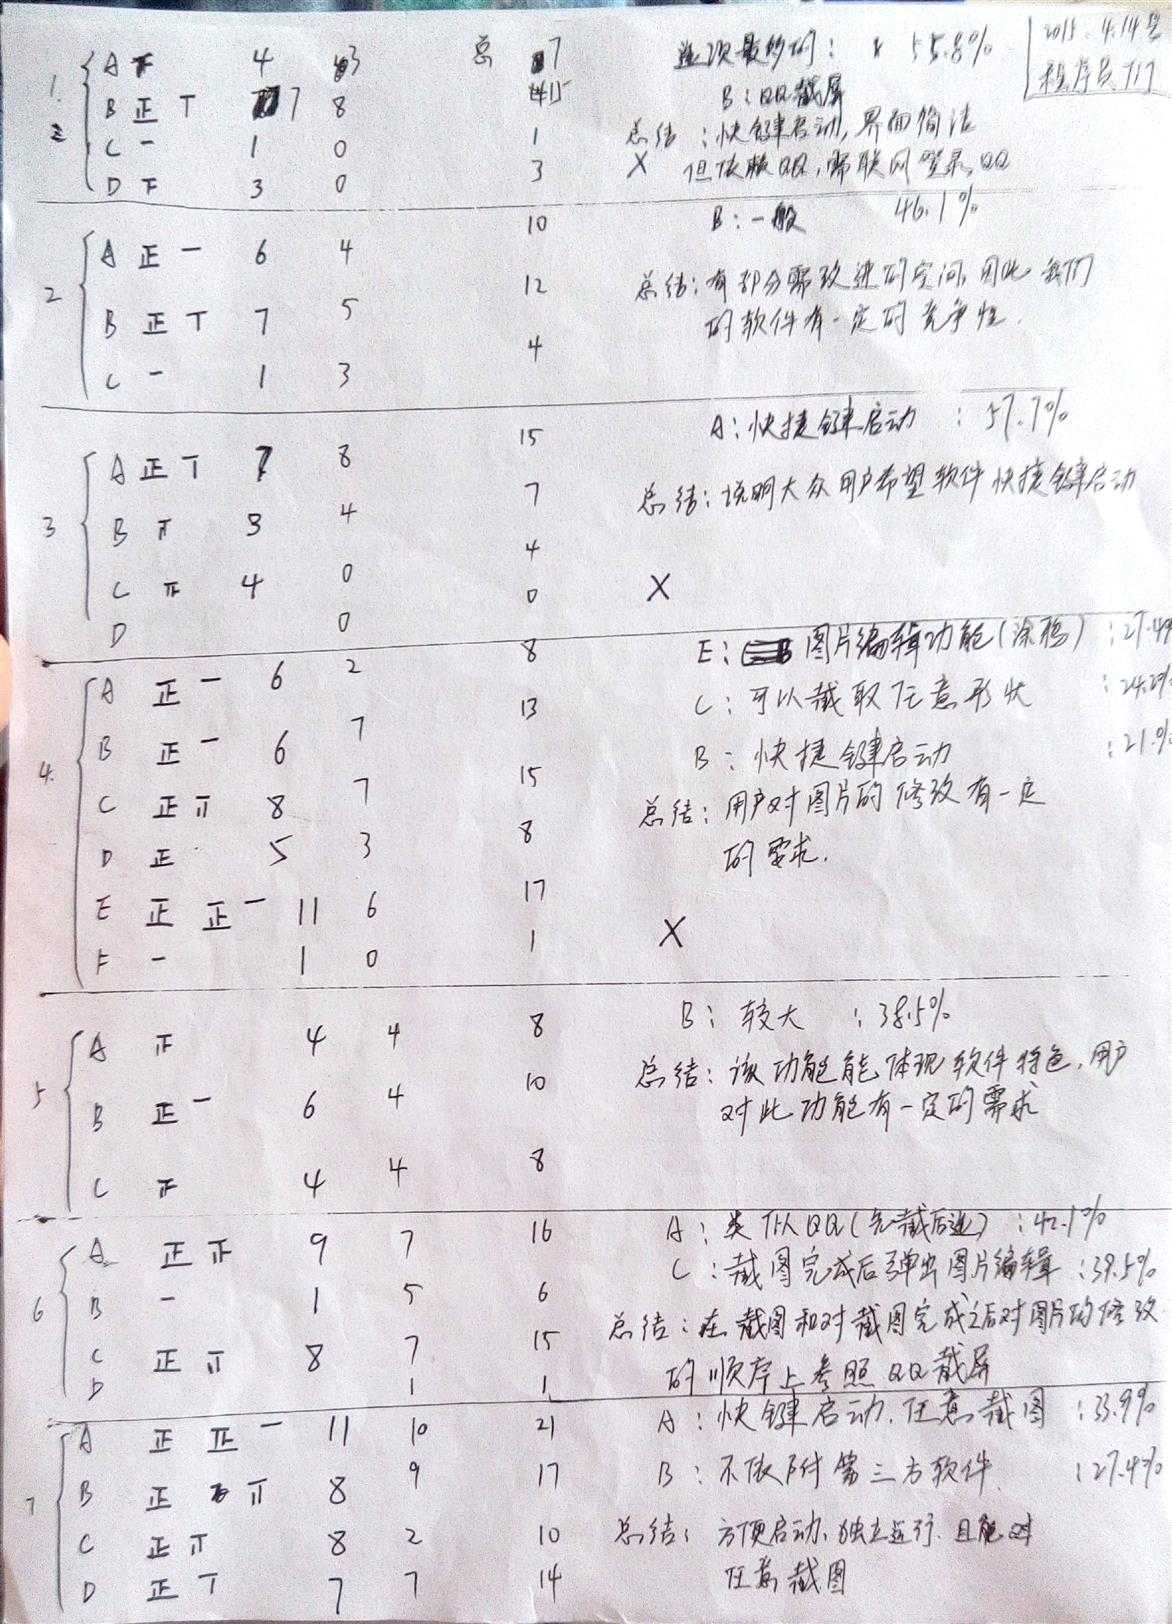 2015.4.14
程序员 717
总
1.
A 4 3 7
B 正 T 7 8 15
C 一 1 0 1
D 3 0 3
选项最多的: 55.8%
B: QQ截屏
总结: 快键启动, 界面简洁
X 但依赖QQ, 需联网登录QQ
2
A 正 一 6 4 10
B 正 T 7 5 12
C 一 1 3 4
B: 一般 46.1%
总结: 有部分需改进的空间, 因此 我们
的软件有一定的竞争性.
3
A 正 T 7 8 15
B 3 4 7
C 4 0 4
D 0 0
A: 快捷键启动 : 57.7%
总结: 说明大众用户希望软件快捷键启动
X
4.
A 正 一 6 2 8
B 正 一 6 7 13
C 正 8 7 15
D 正 5 3 8
E 正 正 一 11 6 17
F 一 1 0 1
E: 图片编辑功能(涂鸦) : 27.4%
C: 可以截取任意形状 : 24.2%
B: 快捷键启动 : 21.0%
总结: 用户对图片的修改有一定
的需求.
X
5
A 正 4 4 8
B 正 一 6 4 10
C 4 4 8
B: 较大 : 38.5%
总结: 该功能能体现软件特色, 用户
对此功能有一定的需求
6
A 正 正 9 7 16
B 一 1 5 6
C 正 8 7 15
D 1 1
A: 类似QQ(先截后选) : 42.1%
C: 截图完成后弹出图片编辑 : 39.5%
总结: 在截图和对截图完成之后对图片的修改
的顺序上参照QQ截屏
7
A 正 正 一 11 10 21
B 正 8 9 17
C 正 T 8 2 10
D 正 T 7 7 14
A: 快键启动, 任意截图 : 33.9%
B: 不依附第三方软件 : 27.4%
总结: 方便启动、独立运行、且能对
任意截图